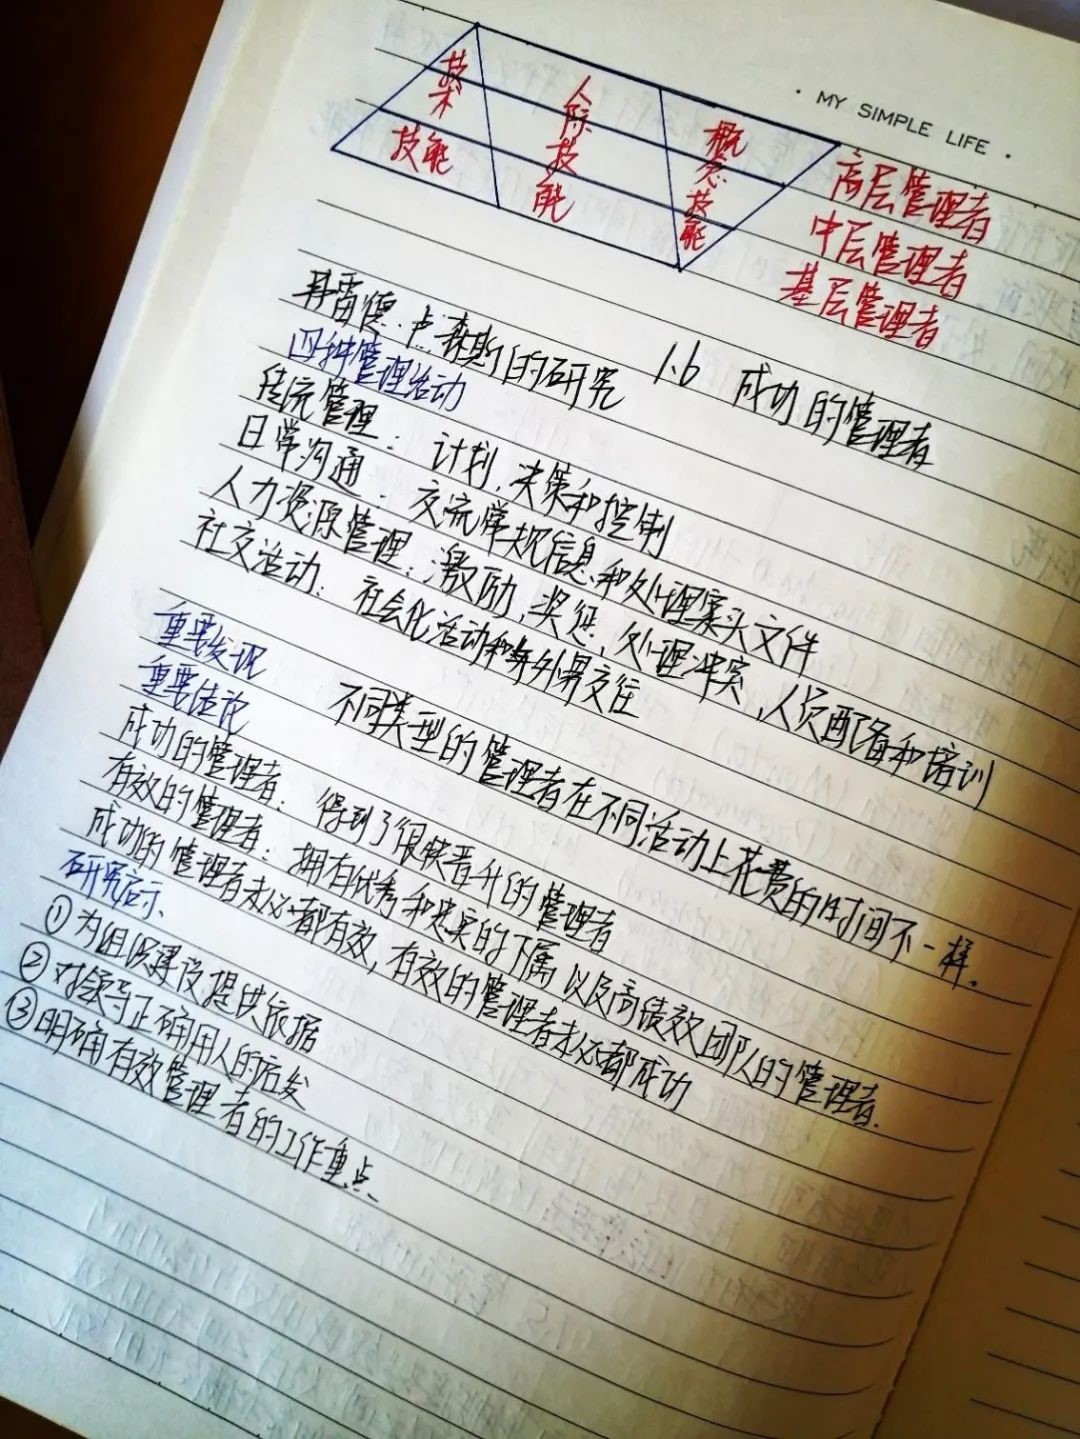 MY SIMPLE LIFE
技术技能
人际技能
概念技能
高层管理者
中层管理者
基层管理者
1.6 成功的管理者
弗雷德·卢森斯的研究
四种管理活动
传统管理：计划,决策和控制
日常沟通：交流常规信息和处理案头文件
人力资源管理：激励,奖惩,处理冲突,人员配备和培训
社交活动：社会化活动和与外界交往
重要发现
不同类型的管理者在不同活动上花费的时间不一样.
重要结论
成功的管理者：得到了很快晋升的管理者
有效的管理者：拥有优秀和忠实的下属以及高绩效团队的管理者.
成功的管理者未必都有效,有效的管理者未必都成功
研究启示.
①为组织建设提供依据
②对领导正确用人的启发
③明确有效管理者的工作重点.